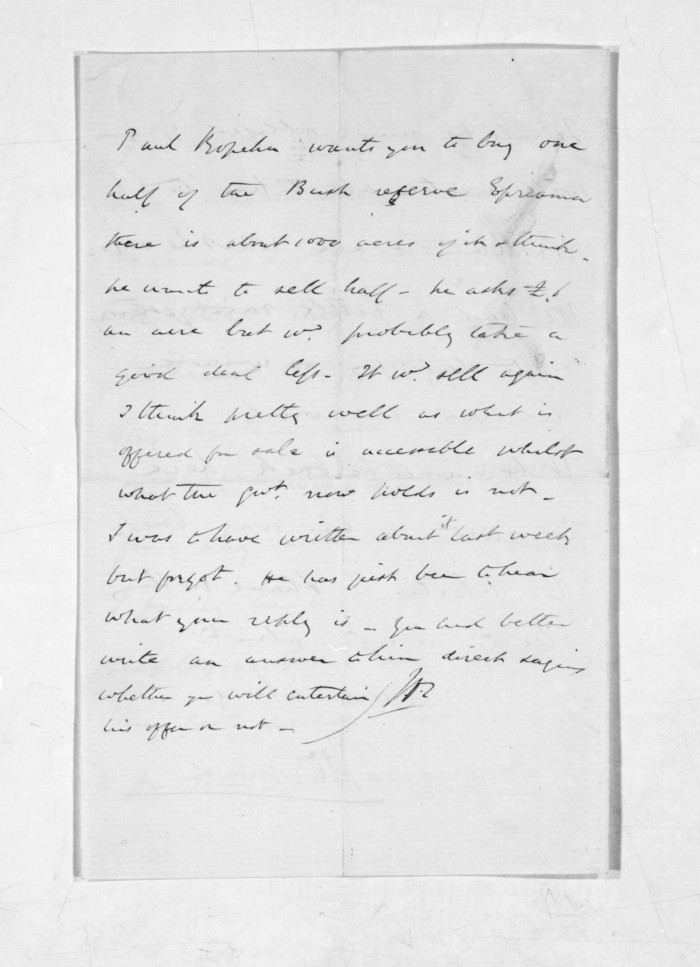 Paul Ropeha wants you to buy one
half of the Bush reserve Epreaima
there is about 1000 acres of it I think -
he want to sell half - he asks £1
an acre but wd. probably take a
good deal less - It wd. sell again
I think pretty well as what is
offered for sale is accessible whilst
what the govt. now holds is not -
I was to have written about it last week
but forgot. He has just been to hear
what your reply is - you had better
write an answer to him direct saying
whether you will entertain
his offer or not -